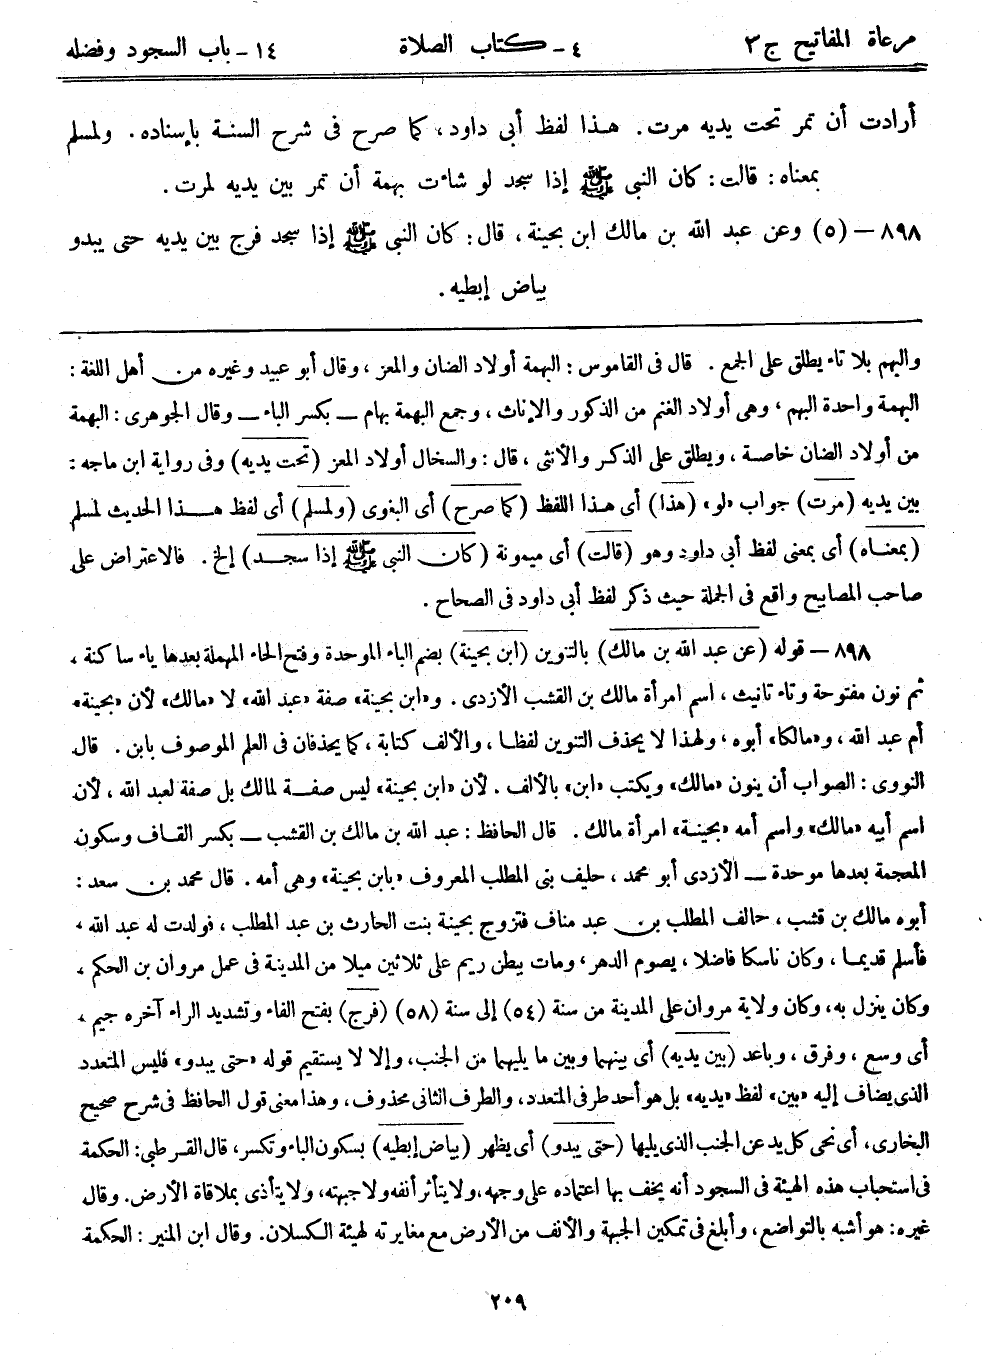 مرعاة المفاتيح ج ٣ ٤ - كتاب الصلاة ١٤ - باب السجود وفضله
أرادت أن تمر تحت يديه مرت. هذا لفظ أبى داود، كما صرح فى شرح السنة بإسناده. ولمسلم
بمعناه: قالت: كان النبى ﷺ إذا سجد لو شاءت بهمة أن تمر بين يديه لمرت.
٨٩٨ - (٥) وعن عبد الله بن مالك ابن بحينة، قال: كان النبى ﷺ إذا سجد فرج بين يديه حتى يبدو
بياض إبطيه.
والبهم بلا تاء يطلق على الجمع. قال فى القاموس: البهمة أولاد الضان والمعز، وقال أبو عبيد وغيره من أهل اللغة:
البهمة واحدة البهم، وهى أولاد الغنم من الذكور والإناث، وجمع البهمة بهام - بكسر الباء - وقال الجوهرى: البهمة
من أولاد الضان خاصة، ويطلق على الذكر والأنثى، قال: والسخال أولاد المعز (تحت يديه) وفى رواية ابن ماجه:
بين يديه (مرت) جواب «لو» (هذا) أى هذا اللفظ (كما صرح) أى البغوى (ولمسلم) أى لفظ هذا الحديث لمسلم
(بمعناه) أى بمعنى لفظ أبى داود وهو (قالت) أى ميمونة (كان النبى ﷺ إذا سجد) إلخ. فالاعتراض على
صاحب المصابيح واقع فى الجملة حيث ذكر لفظ أبى داود فى الصحاح.
٨٩٨ - قوله (عن عبد الله بن مالك) بالتنوين (ابن بحينة) بضم الباء الموحدة وفتح الحاء المهملة بعدها ياء ساكنة،
ثم نون مفتوحة وتاء تانيث، اسم امرأة مالك بن القشب الأزدى. و«ابن بحينة» صفة «عبد الله» لا «مالك» لأن «بحينة»
أم عبد الله، و«مالكا» أبوه، ولهذا لا يحذف التنوين لفظا، والألف كتابة، كما يحذفان فى العلم الموصوف بابن. قال
النووى: الصواب أن ينون «مالك» ويكتب «ابن» بالألف. لأن «ابن بحينة» ليس صفة لمالك بل صفة لعبد الله، لأن
اسم أبيه «مالك» واسم أمه «بحينة» امرأة مالك. قال الحافظ: عبد الله بن مالك بن القشب - بكسر القاف وسكون
المعجمة بعدها موحدة - الأزدى أبو محمد، حليف بنى المطلب المعروف «بابن بحينة» وهى أمه. قال محمد بن سعد:
أبوه مالك بن قشب، حالف المطلب بن عبد مناف فتزوج بحينة بنت الحارث بن عبد المطلب، فولدت له عبد الله،
فأسلم قديما، وكان ناسكا فاضلا، يصوم الدهر، ومات ببطن ريم على ثلاثين ميلا من المدينة فى عمل مروان بن الحكم،
وكان ينزل به، وكان ولاية مروان على المدينة من سنة (٥٤) إلى سنة (٥٨) (فرج) بفتح الفاء وتشديد الراء آخره جيم،
أى وسع، وفرق، وباعد (بين يديه) أى بينهما وبين ما يليهما من الجنب، وإلا لا يستقيم قوله «حتى يبدو» فليس المتعدد
الذى يضاف إليه «بين» لفظ «يديه» بل هو أحد طرفى المتعدد، والطرف الثانى محذوف، وهذا معنى قول الحافظ فى شرح صحيح
البخارى، أى نحى كل يد عن الجنب الذى يليها (حتى يبدو) أى يظهر (بياض إبطيه) بسكون الباء وتكسر، قال القرطبى: الحكمة
فى استحباب هذه الهيئة فى السجود أنه يخف بها اعتماده على وجهه، ولا يتأثر أنفه ولا جبهته، ولا يتأذى بملاقاة الأرض. وقال
غيره: هو أشبه بالتواضع، وأبلغ فى تمكين الجبهة والأنف من الأرض مع مغايرته لهيئة الكسلان. وقال ابن المنير: الحكمة
٢٠٩